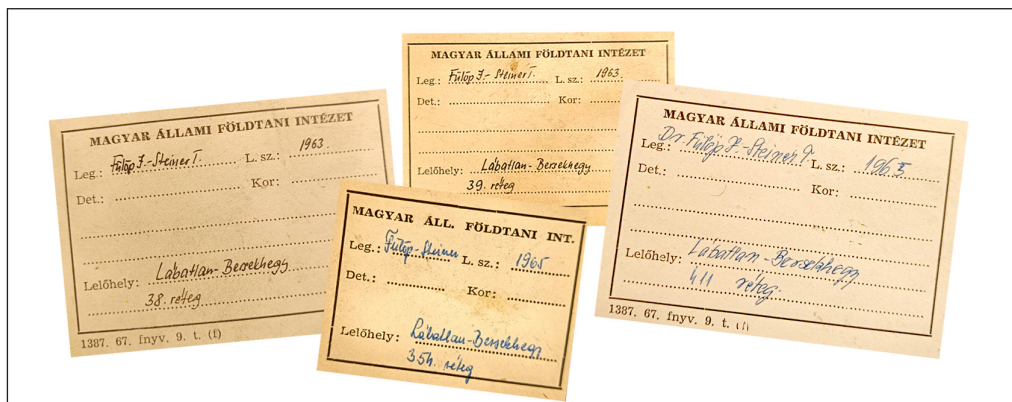 MAGYAR ÁLLAMI FÖLDTANI INTÉZET
Leg.: Fülöp J.-Steiner T. L. sz.: 1963.
Det.: Kor:
Lelőhely: Lábatlan-Bersekhegy
38. réteg
1387. 67. fnyv. 9. t. (f)
MAGYAR ÁLLAMI FÖLDTANI INTÉZET
Leg.: Fülöp J.-Steiner T. L. sz.: 1963.
Det.: Kor:
Lelőhely: Lábatlan-Bersekhegy
39. réteg
MAGYAR ÁLL. FÖLDTANI INT.
Leg.: Fülöp-Steiner L. sz.: 1965
Det.: Kor:
Lelőhely: Lábatlan-Bersekhegy
réteg
MAGYAR ÁLLAMI FÖLDTANI INTÉZET
Leg.: Dr. Fülöp J.-Steiner T. L. sz.:
Det.: Kor:
Lelőhely: Lábatlan-Bersekhegy
réteg
1387. 67. fnyv. 9. t.